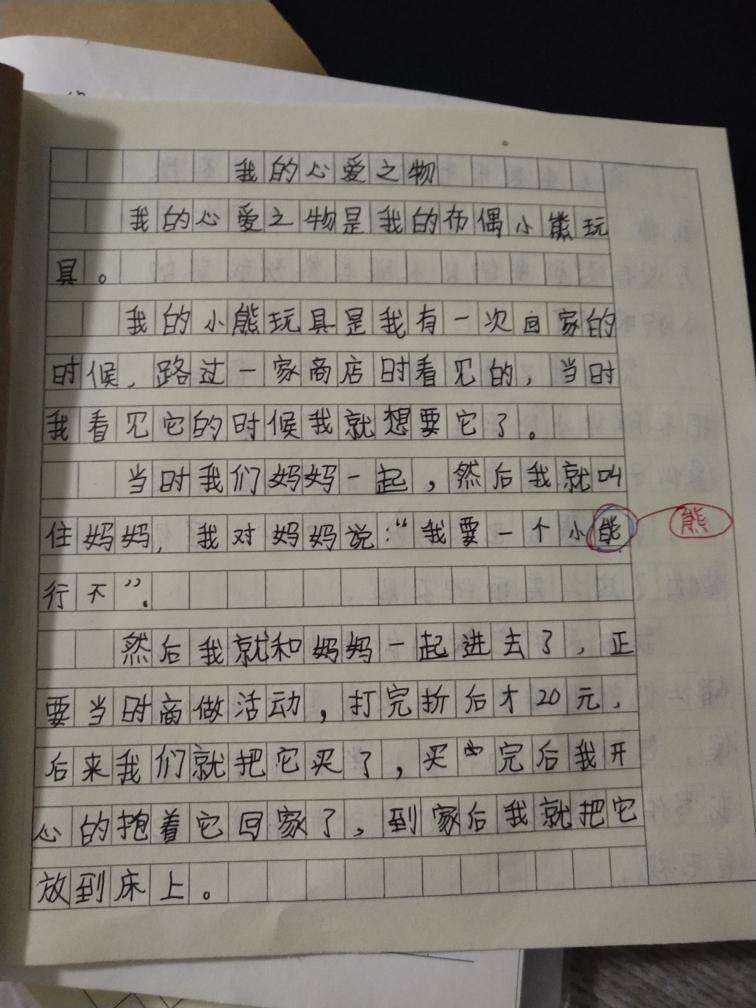 我的心爱之物
我的心爱之物是我的布偶小熊玩
具。
我的小熊玩具是我有一次回家的
时候,路过一家商店时看见的,当时
我看见它的时候我就想要它了。
当时我们妈妈一起,然后我就叫
住妈妈,我对妈妈说:“我要一个小能 熊
行不”.
然后我就和妈妈一起进去了,正
要当时商做活动,打完折后才20元,
后来我们就把它买了,买完后我开
心的抱着它回家了,到家后我就把它
放到床上。